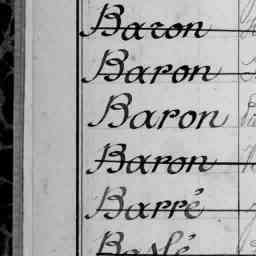 Baron
Baron
Baron
Baron
Barré